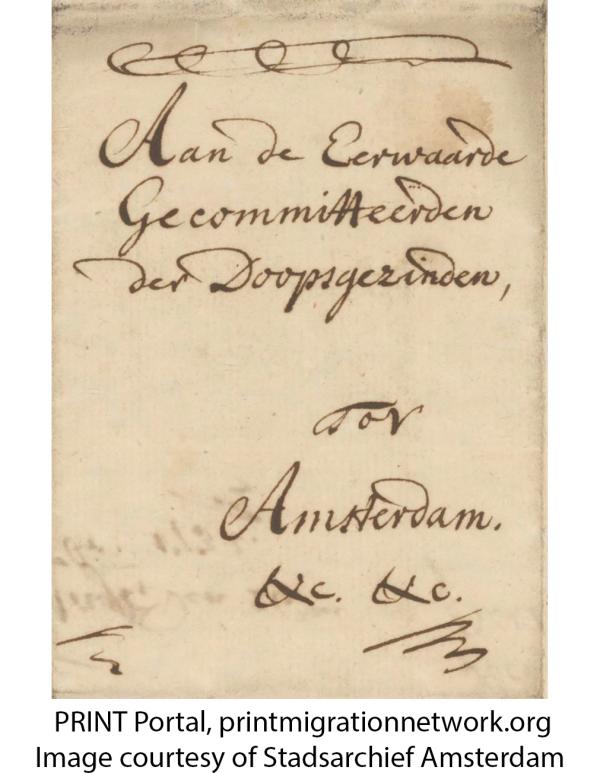 Aan de Eerwaarde
Gecommitteerden
der Doopsgezinden,
Tot
Amsterdam.
&c. &c.
PRINT Portal, printmigrationnetwork.org
Image courtesy of Stadsarchief Amsterdam